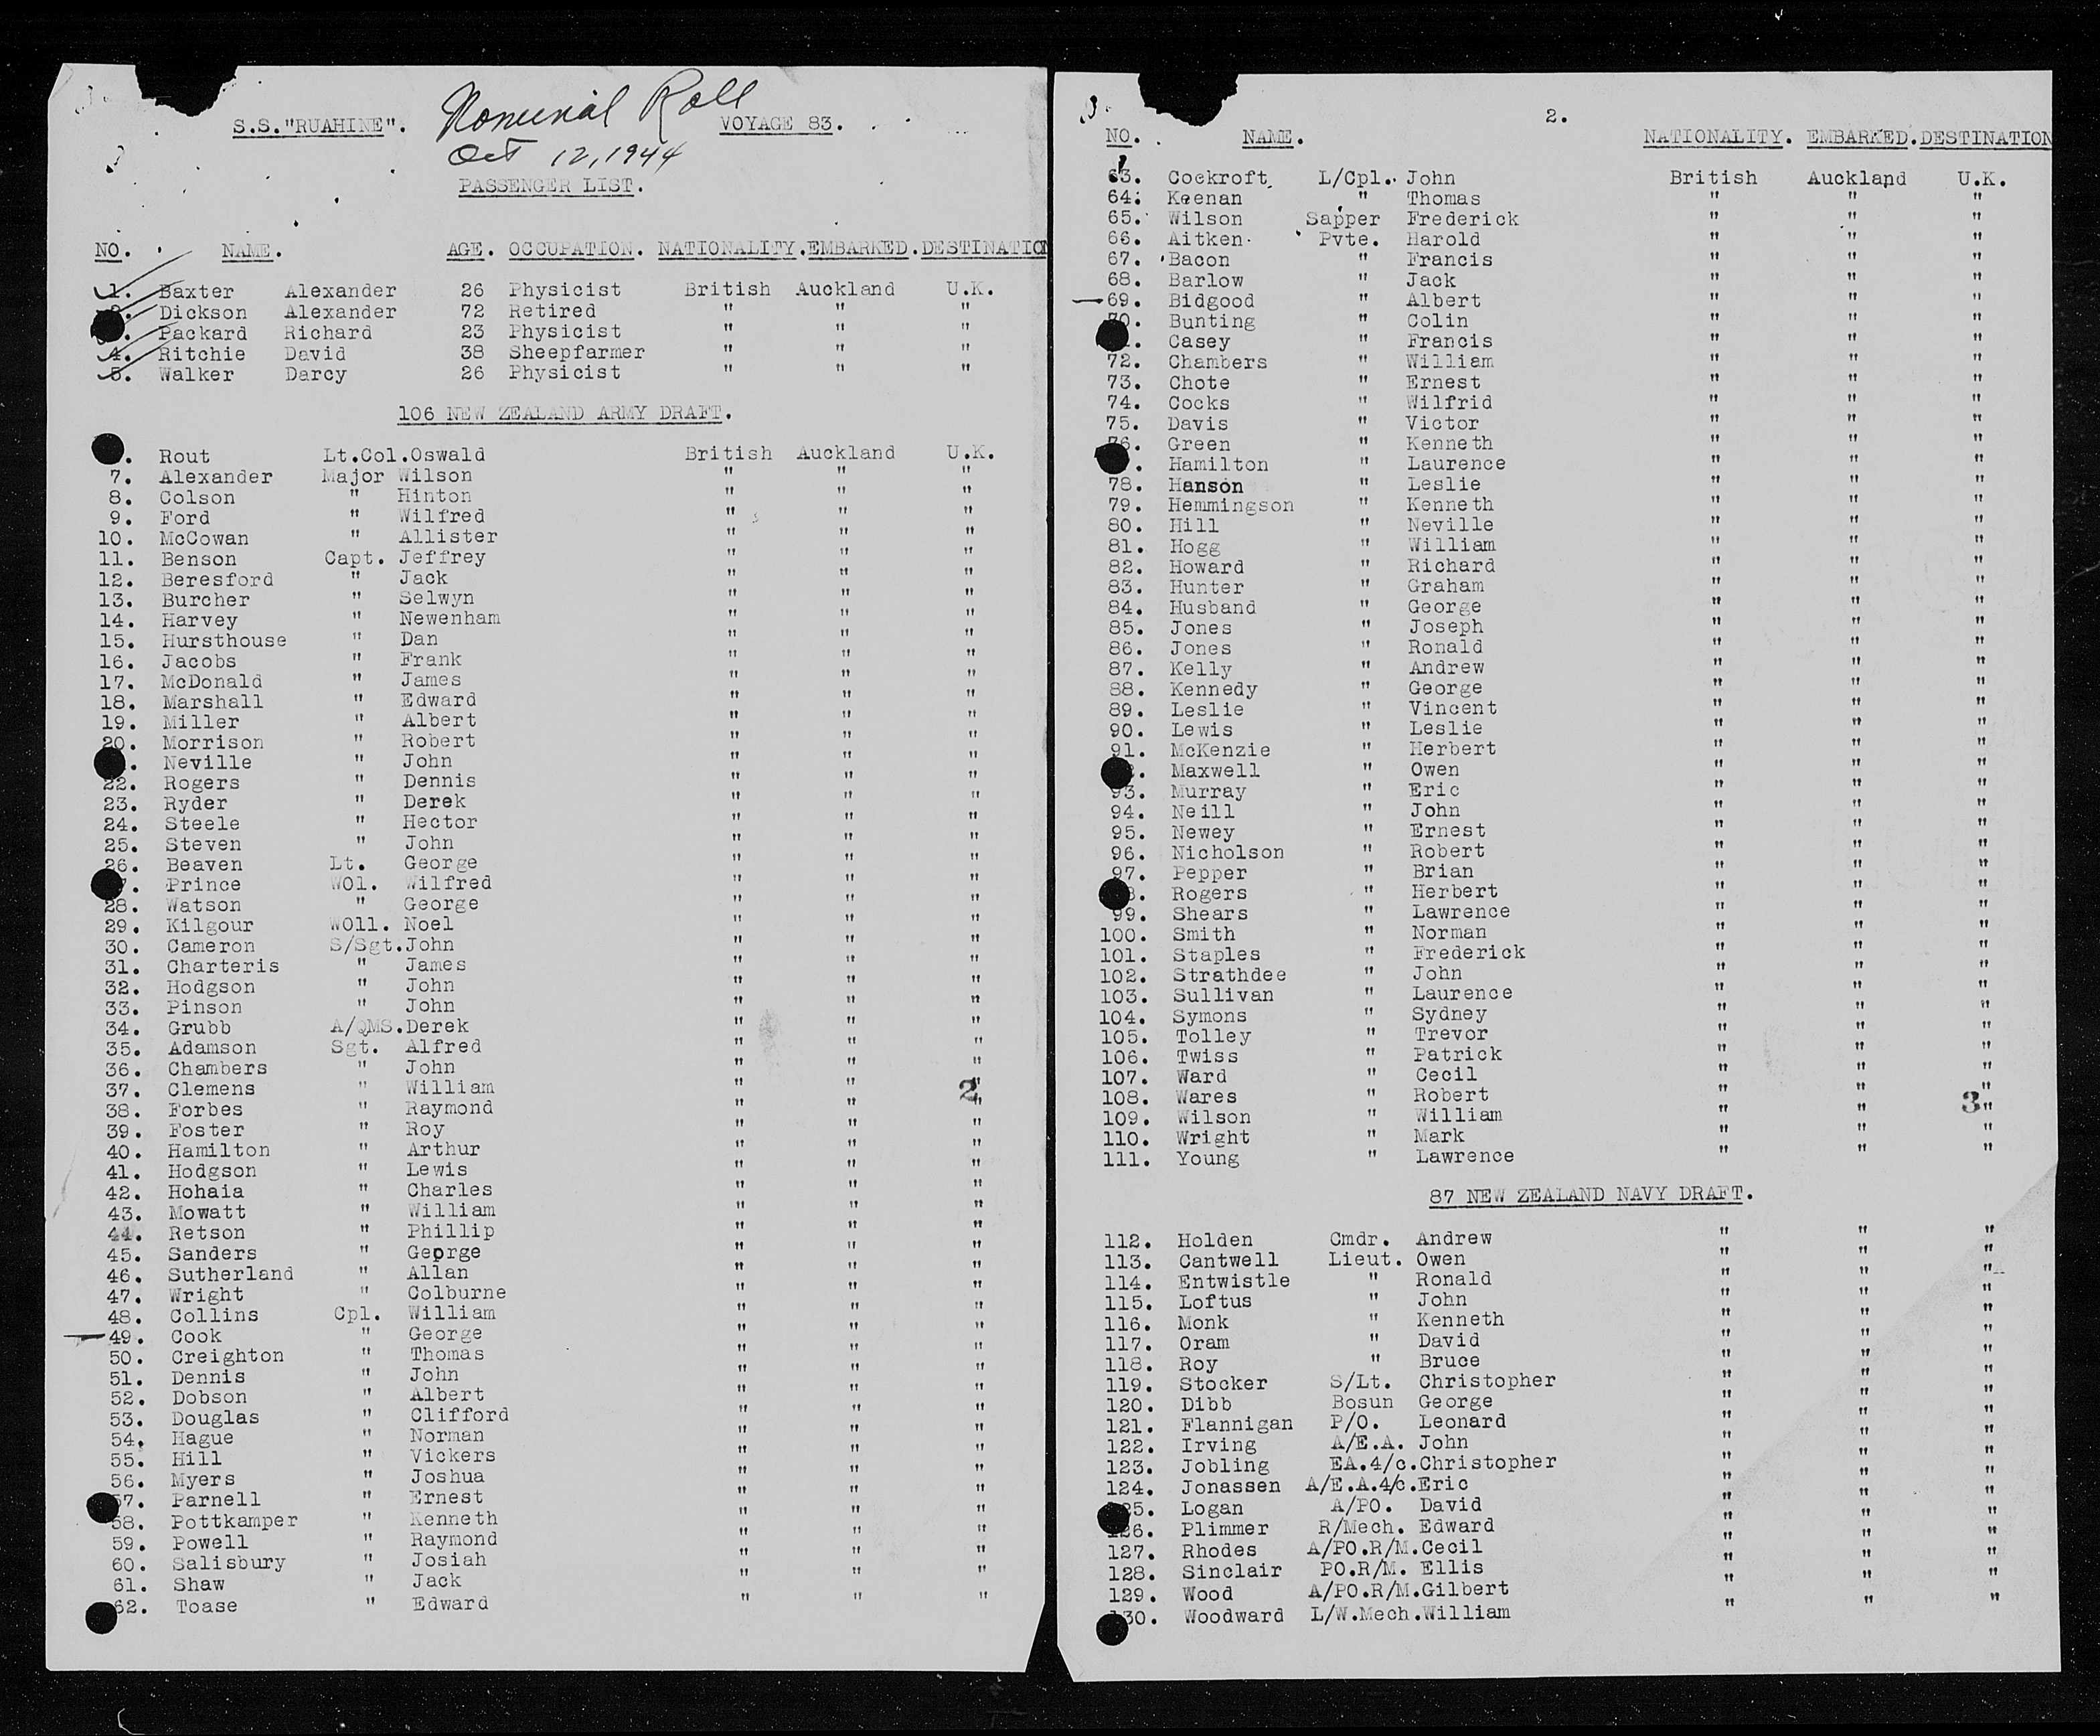 S.S."RUAHINE". Nominal Roll VOYAGE 83.
Oct 12, 1944
PASSENGER LIST.
NO. NAME. AGE. OCCUPATION. NATIONALITY. EMBARKED. DESTINATION
1. Baxter Alexander 26 Physicist British Auckland U.K.
Dickson Alexander 72 Retired " " "
Packard Richard 23 Physicist " " "
4. Ritchie David 38 Sheepfarmer " " "
5. Walker Darcy 26 Physicist " " "
106 NEW ZEALAND ARMY DRAFT.
Rout Lt.Col.Oswald British Auckland U.K.
7. Alexander Major Wilson " " "
8. Colson " Hinton " " "
9. Ford " Wilfred " " "
10. McCowan " Allister " " "
11. Benson Capt. Jeffrey " " "
12. Beresford " Jack " " "
13. Burcher " Selwyn " " "
14. Harvey " Newenham " " "
15. Hursthouse " Dan " " "
16. Jacobs " Frank " " "
17. McDonald " James " " "
18. Marshall " Edward " " "
19. Miller " Albert " " "
20. Morrison " Robert " " "
Neville " John " " "
22. Rogers " Dennis " " "
23. Ryder " Derek " " "
24. Steele " Hector " " "
25. Steven " John " " "
26. Beaven Lt. George " " "
7. Prince WOl. Wilfred " " "
28. Watson " George " " "
29. Kilgour WOll. Noel " " "
30. Cameron S/Sgt.John " " "
31. Charteris " James " " "
32. Hodgson " John " " "
33. Pinson " John " " "
34. Grubb A/QMS.Derek " " "
35. Adamson Sgt. Alfred " " "
36. Chambers " John " " "
37. Clemens " William " " "
2
38. Forbes " Raymond " " "
39. Foster " Roy " " "
40. Hamilton " Arthur " " "
41. Hodgson " Lewis " " "
42. Hohaia " Charles " " "
43. Mowatt " William " " "
44. Retson " Phillip " " "
45. Sanders " George " " "
46. Sutherland " Allan " " "
47. Wright " Colburne " " "
48. Collins Cpl. William " " "
49. Cook " George " " "
50. Creighton " Thomas " " "
51. Dennis " John " " "
52. Dobson " Albert " " "
53. Douglas " Clifford " " "
54. Hague " Norman " " "
55. Hill " Vickers " " "
56. Myers " Joshua " " "
57. Parnell " Ernest " " "
58. Pottkamper " Kenneth " " "
59. Powell " Raymond " " "
60. Salisbury " Josiah " " "
61. Shaw " Jack " " "
62. Toase " Edward " " "
2.
NO. NAME. NATIONALITY. EMBARKED. DESTINATION
63. Cockroft L/Cpl. John British Auckland U.K.
64. Keenan " Thomas " " "
65. Wilson Sapper Frederick " " "
66. Aitken Pvte. Harold " " "
67. Bacon " Francis " " "
68. Barlow " Jack " " "
69. Bidgood " Albert " " "
70. Bunting " Colin " " "
Casey " Francis " " "
72. Chambers " William " " "
73. Chote " Ernest " " "
74. Cocks " Wilfrid " " "
75. Davis " Victor " " "
76. Green " Kenneth " " "
Hamilton " Laurence " " "
78. Hanson " Leslie " " "
79. Hemmingson " Kenneth " " "
80. Hill " Neville " " "
81. Hogg " William " " "
82. Howard " Richard " " "
83. Hunter " Graham " " "
84. Husband " George " " "
85. Jones " Joseph " " "
86. Jones " Ronald " " "
87. Kelly " Andrew " " "
88. Kennedy " George " " "
89. Leslie " Vincent " " "
90. Lewis " Leslie " " "
91. McKenzie " Herbert " " "
Maxwell " Owen " " "
93. Murray " Eric " " "
94. Neill " John " " "
95. Newey " Ernest " " "
96. Nicholson " Robert " " "
97. Pepper " Brian " " "
8. Rogers " Herbert " " "
99. Shears " Lawrence " " "
100. Smith " Norman " " "
101. Staples " Frederick " " "
102. Strathdee " John " " "
103. Sullivan " Laurence " " "
104. Symons " Sydney " " "
105. Tolley " Trevor " " "
106. Twiss " Patrick " " "
107. Ward " Cecil " " "
108. Wares " Robert " " "
3
109. Wilson " William " " "
110. Wright " Mark " " "
111. Young " Lawrence " " "
87 NEW ZEALAND NAVY DRAFT.
112. Holden Cmdr. Andrew " " "
113. Cantwell Lieut. Owen " " "
114. Entwistle " Ronald " " "
115. Loftus " John " " "
116. Monk " Kenneth " " "
117. Oram " David " " "
118. Roy " Bruce " " "
119. Stocker S/Lt. Christopher " " "
120. Dibb Bosun George " " "
121. Flannigan P/O. Leonard " " "
122. Irving A/E.A. John " " "
123. Jobling EA.4/c.Christopher " " "
124. Jonassen A/E.A.4/c.Eric " " "
125. Logan A/PO. David " " "
126. Plimmer R/Mech. Edward " " "
127. Rhodes A/PO.R/M.Cecil " " "
128. Sinclair PO.R/M. Ellis " " "
129. Wood A/PO.R/M.Gilbert " " "
130. Woodward L/W.Mech.William " " "